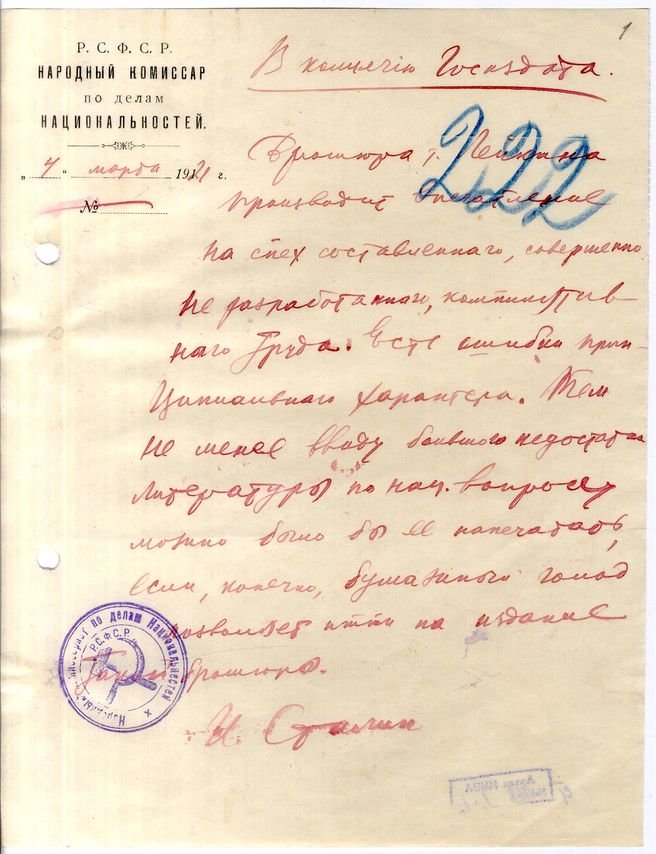 1
Р. С. Ф. С. Р.
НАРОДНЫЙ КОМИССАР
по делам
НАЦИОНАЛЬНОСТЕЙ.
„4“ марта 1921 г.
№
В коллегию Госиздата.
222
Брошюра т.
производит впечатление
на спех составленного, совершенно
не разработанного, компилятив-
ного труда. Есть ошибки прин-
ципиального характера. Тем
не менее ввиду большого недостатка
литературы по нац. вопросу
можно было бы ее напечатать,
если, конечно, бумажный голод
позволяет итти на издание
такой брошюры.
И. Сталин
Народный Комиссариат по делам Национальностей
Р.С.Ф.С.Р.